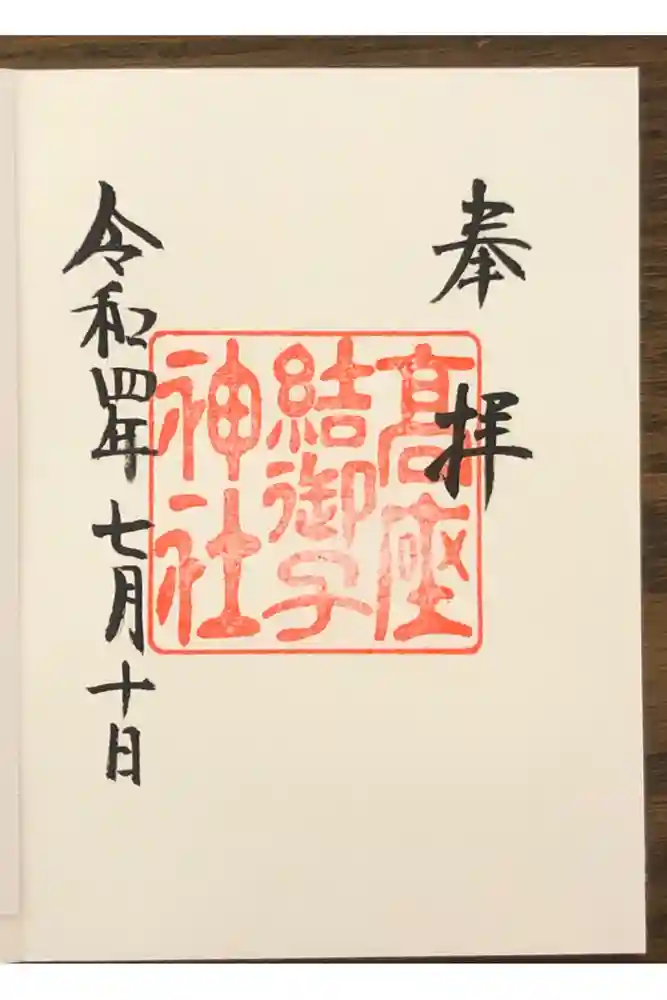 奉拝
髙座
結御子
神社
令和四年七月十日